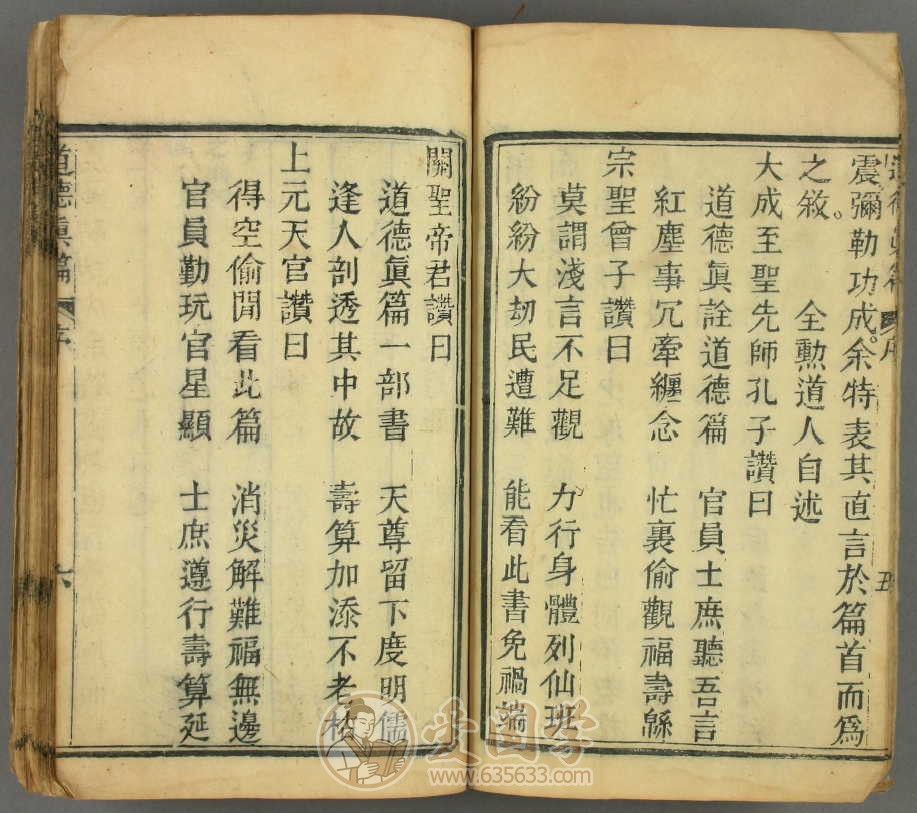 道德眞篇 序 五
震彌勒功成。余特表其直言於篇首而爲
之敘。 全勳道人自述
大成至聖先師孔子讚曰
道德眞詮道德篇 官員士庶聽吾言
紅塵事冗牽纏念 忙裏偷觀福壽緜
宗聖曾子讚曰
莫謂淺言不足觀 力行身體列仙班
紛紛大刼民遭難 能看此書免禍端
關聖帝君讚曰
道德眞篇一部書 天尊留下度明儒
逢人剖透其中故 壽算加添不老枯
上元天官讚曰
得空偷閒看此篇 消災解難福無邊
官員勤玩官星顯 士庶遵行壽算延
道德眞篇 序 六
爱国学
www.635633.com